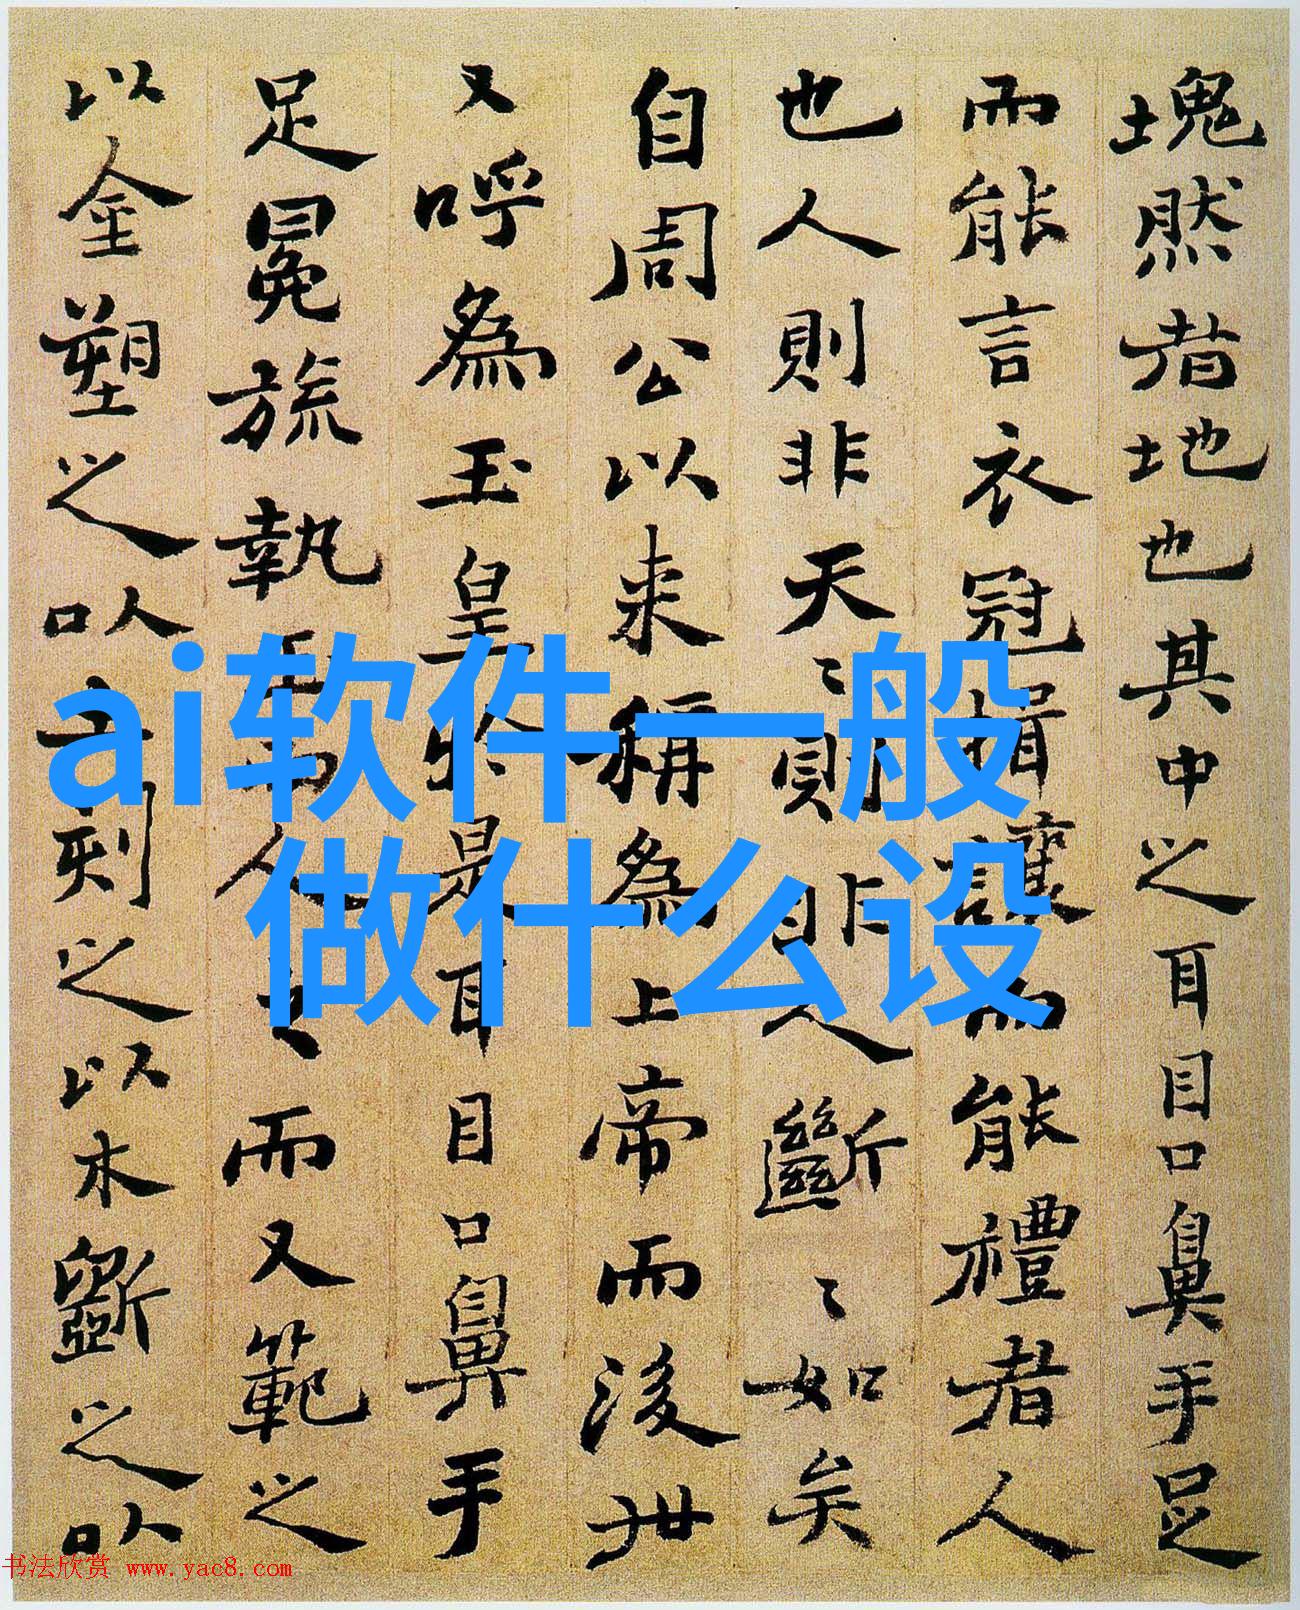 塊然者地也其中之耳目口鼻手足
而能言衣冠揖讓而能禮者人
也人則非天〻則非人斷〻如矣
自周公以来稱為上帝而後世
又呼為玉皇於是耳目口鼻手
足冕旒執玉而人之而又範之
以金塑之以土刻之以木斲之以
ai软件一般
做什么设
书法欣赏 www.yac8.com